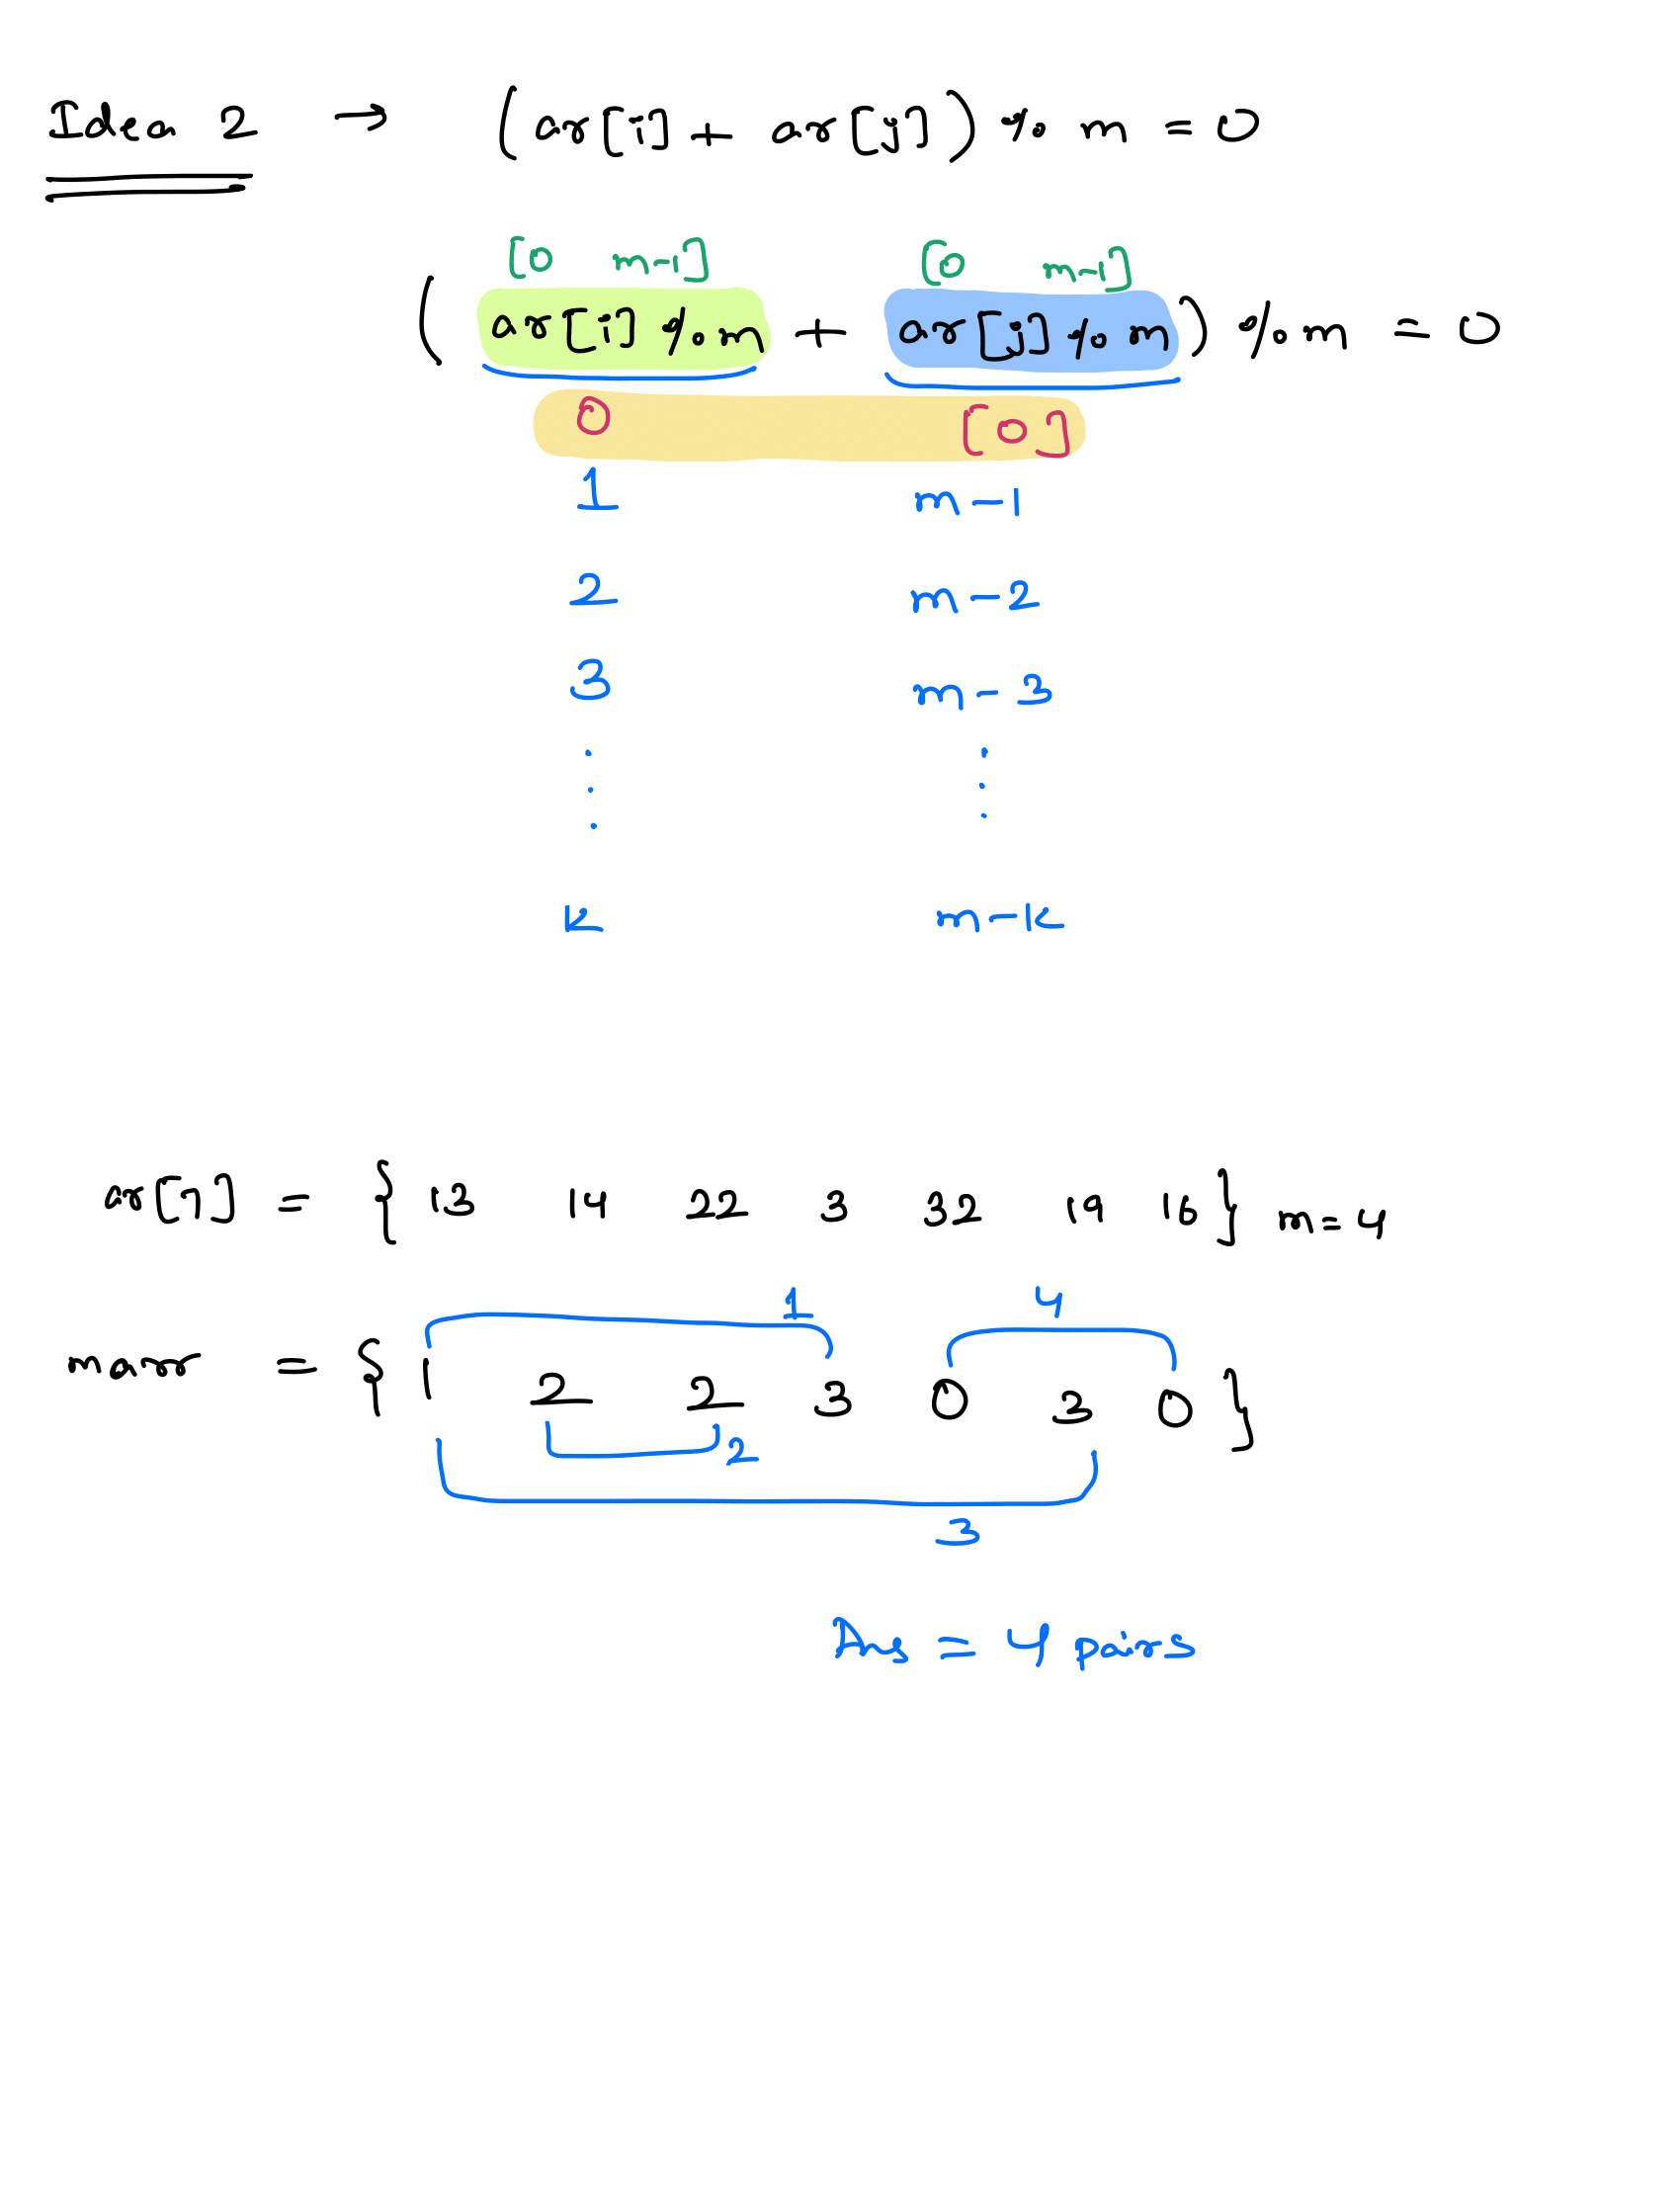 Idea 2 → (ar[i] + ar[j]) % m = 0
[0 m-1] [0 m-1]
( ar[i] % m + ar[j] % m ) % m = 0
0 [0]
1 m-1
2 m-2
3 m-3
. .
. .
. .
k m-k
ar[7] = { 13 14 22 3 32 19 16 } m=4
1 4
marr = { 1 2 2 3 0 3 0 }
2
3
Ans = 4 pairs